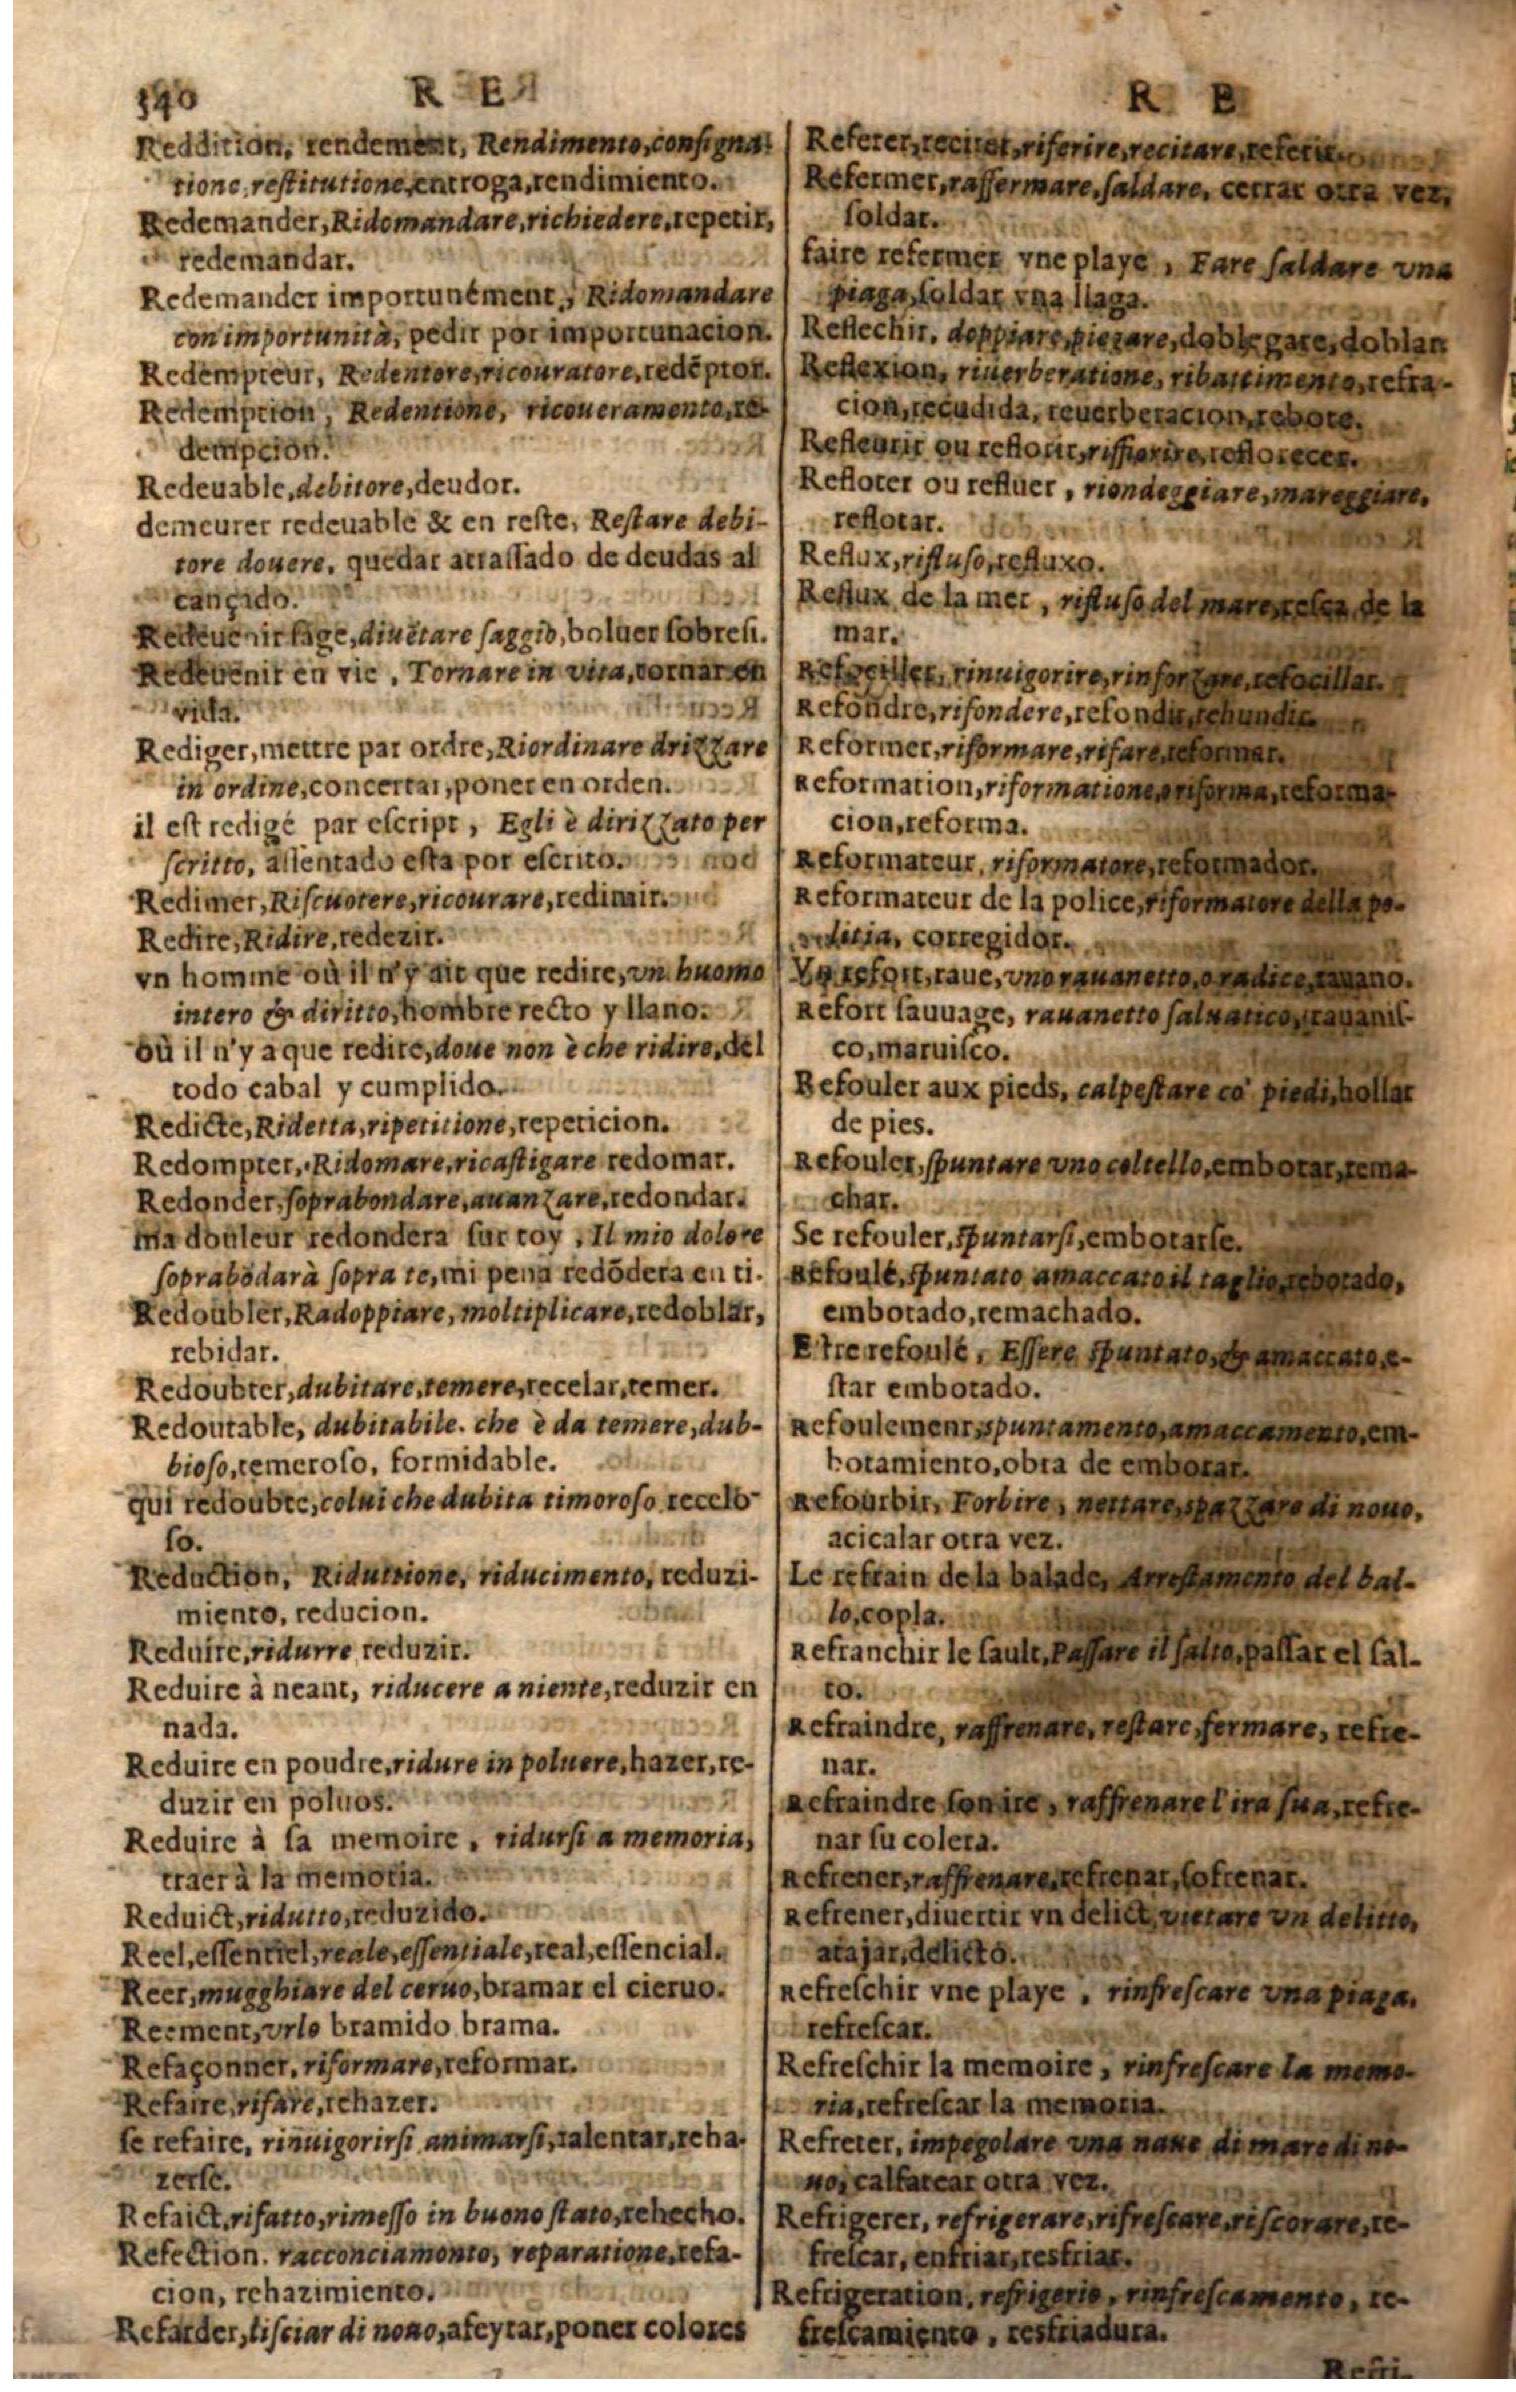 340 R E
Reddition, rendement, Rendimento, consigna-
tione, restitutione, entroga, rendimiento.
Redemander, Ridomandare, richiedere, repetir,
redemandar.
Redemander importunément, Ridomandare
con importunità, pedir por importunacion.
Redempteur, Redentore, ricouratore, redẽptor.
Redemption, Redentione, ricoueramento, re-
dempcion.
Redeuable, debitore, deudor.
demeurer redeuable & en reste, Restare debi-
tore douere, quedar atrassado de deudas al
cançido.
Redeuenir sage, diuẽtare saggio, boluer sobresi.
Redeuenir en vie, Tornare in vita, tornar en
vida.
Rediger, mettre par ordre, Riordinare drizzare
in ordine, concertar, poner en orden.
il est redigé par escript, Egli è dirizzato per
scritto, assentado esta por escrito.
Redimer, Riscuotere, ricourare, redimir.
Redire, Ridire, redezir.
vn homme où il n'y ait que redire, vn huomo
intero & diritto, hombre recto y llano.
où il n'y a que redire, doue non è che ridire, del
todo cabal y cumplido.
Redicte, Ridetta, ripetitione, repeticion.
Redompter, Ridomare, ricastigare redomar.
Redonder, soprabondare, auanzare, redondar.
ma douleur redondera sur toy, Il mio dolore
soprabõdarà sopra te, mi pena redõdera en ti.
Redoubler, Radoppiare, moltiplicare, redoblar,
rebidar.
Redoubter, dubitare, temere, recelar, temer.
Redoutable, dubitabile. che è da temere, dub-
bioso, temeroso, formidable.
qui redoubte, colui che dubita timoroso recelo-
so.
Reduction, Riduttione, riducimento, reduzi-
miento, reducion.
Reduire, ridurre reduzir.
Reduire à neant, riducere a niente, reduzir en
nada.
Reduire en poudre, ridure in poluere, hazer, re-
duzir en poluos.
Reduire à sa memoire, ridursi a memoria,
traer à la memoria.
Reduict, ridutto, reduzido.
Reel, essentiel, reale, essentiale, real, essencial.
Reer, mugghiare del ceruo, bramar el cieruo.
Reement, vrlo bramido brama.
Refaçonner, riformare, reformar.
Refaire, rifare, rehazer.
se refaire, rinuigorirsi animarsi, ralentar, reha-
zerse.
Refaict, rifatto, rimesso in buono stato, rehecho.
Refection. racconciamonto, reparatione, refa-
cion, rehazimiento.
Refarder, lisciar di nouo, afeytar, poner colores
R E
Referer, reciter, riferire, recitare, referir.
Refermer, raffermare, saldare, cerrar otra vez,
soldar.
faire refermer vne playe, Fare saldare vna
piaga, soldar vna llaga.
Reflechir, doppiare, piegare, doblegare, doblar.
Reflexion, riuerberatione, ribattimento, refra-
cion, recudida, reuerberacion, rebote.
Refleurir ou reflorir, riffiorire, reflorecer.
Refloter ou refluer, riondeggiare, mareggiare,
reflotar.
Reflux, riflusso, refluxo.
Reflux de la mer, riflusso del mare, resca de la
mar.
Refociller, rinuigorire, rinforzare, refocillar.
Refondre, rifondere, refondir, rehundir.
Reformer, riformare, rifare, reformar.
Reformation, riformatione, o riforma, reforma-
cion, reforma.
Reformateur, riformatore, reformador.
Reformateur de la police, riformatore della po-
litia, corregidor.
Vn refort, raue, vno rauanetto, o radice, rauano.
Refort sauuage, rauanetto saluatico, rauanis-
co, maruisco.
Refouler aux pieds, calpestare co' piedi, hollar
de pies.
Refouler, spuntare vno coltello, embotar, rema-
char.
Se refouler, spuntarsi, embotarse.
Refoulé, spuntato amaccato il taglio, rebotado,
embotado, remachado.
Estre refoulé, Essere spuntato, & amaccato, e-
star embotado.
Refoulement, spuntamento, amaccamento, em-
botamiento, obra de embotar.
Refourbir, Forbire, nettare, spazzare di nouo,
acicalar otra vez.
Le refrain de la balade, Arrestamento del bal-
lo, copla.
Refranchir le sault, Passare il salto, passar el sal-
to.
Refraindre, raffrenare, restare, fermare, refre-
nar.
Refraindre son ire, raffrenare l'ira sua, refre-
nar su colera.
Refrener, raffrenare, refrenar, sofrenar.
Refrener, diuertir vn delict, vietare vn delitto,
atajar, delicto.
Refreschir vne playe, rinfrescare vna piaga,
refrescar.
Refreschir la memoire, rinfrescare la memo-
ria, refrescar la memoria.
Refreter, impegolare vna naue di mare di no-
uo, calfatear otra vez.
Refrigerer, refrigerare, rifrescare, riscorare, re-
frescar, enfriar, resfriar.
Refrigeration, refrigerio, rinfrescamento, re-
frescamiento, resfriadura.
Refri-